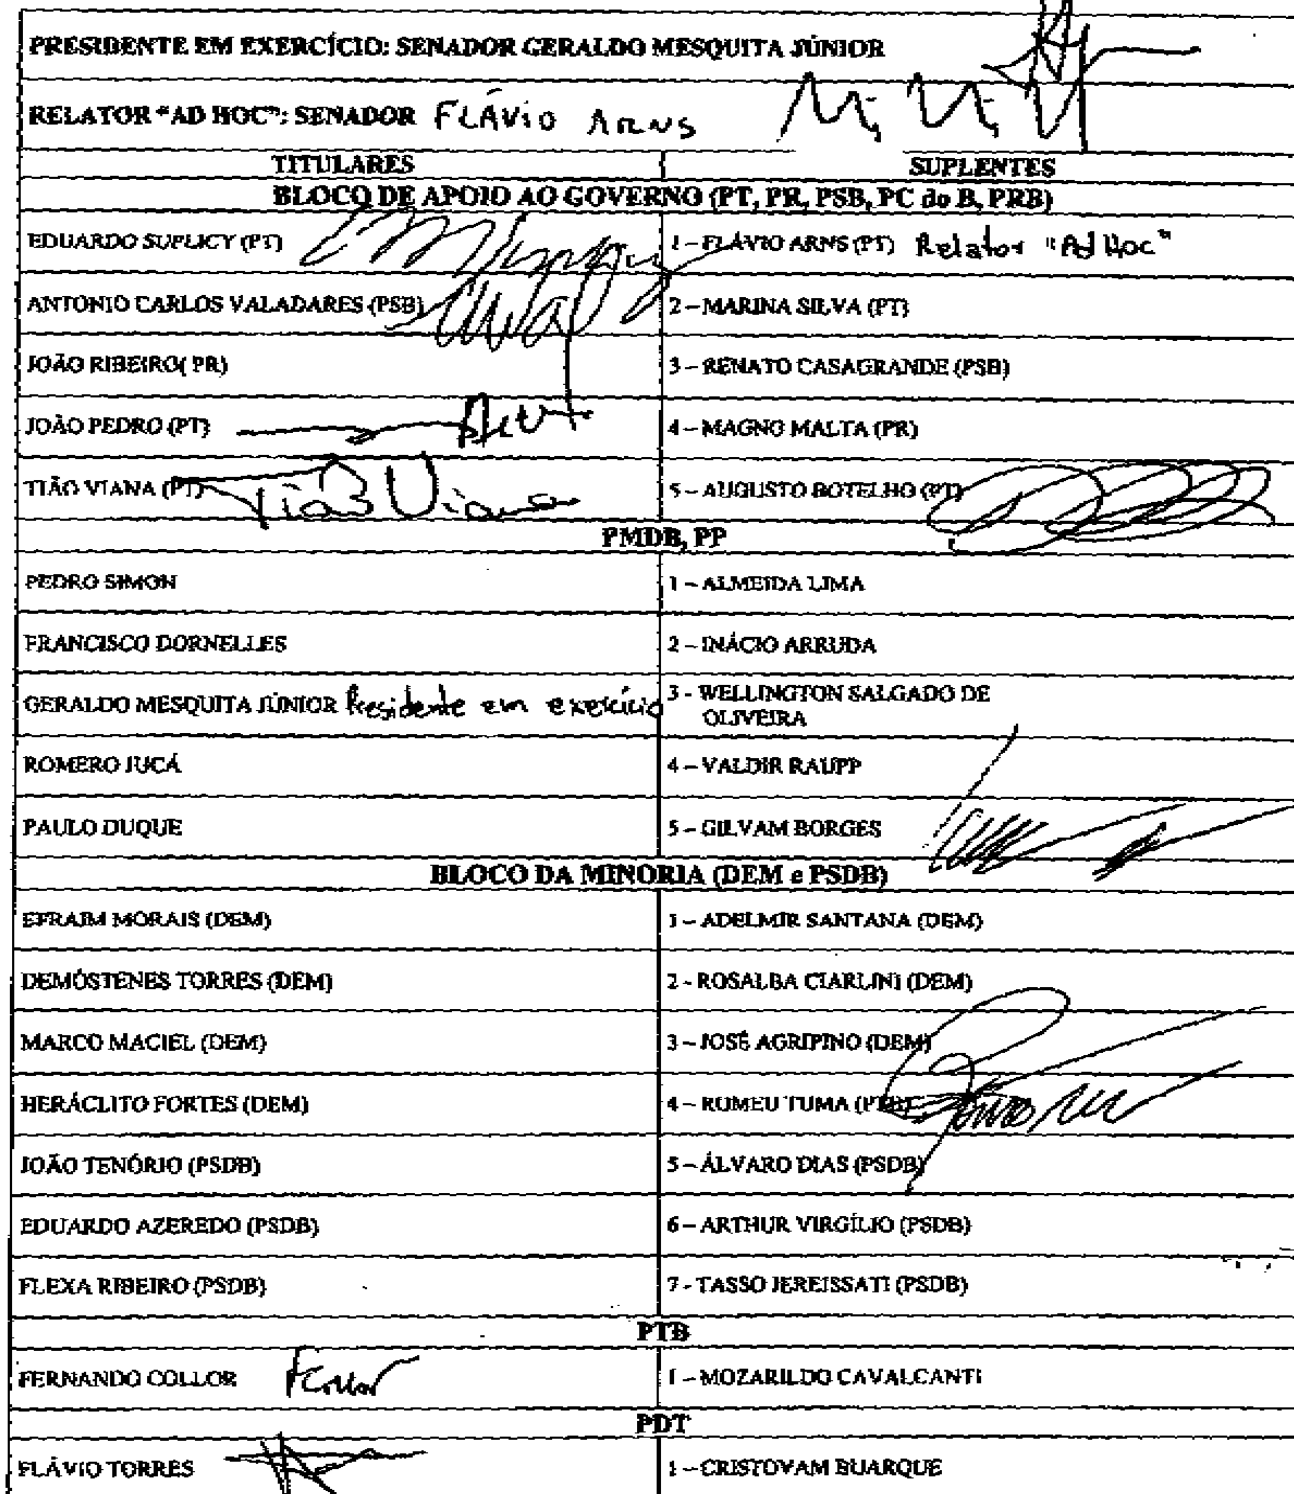 PRESIDENTE EM EXERCÍCIO: SENADOR GERALDO MESQUITA JÚNIOR
RELATOR "AD HOC": SENADOR FLÁVIO ARNS
TITULARES SUPLENTES
BLOCO DE APOIO AO GOVERNO (PT, PR, PSB, PC do B, PRB)
EDUARDO SUPLICY (PT) 1 – FLÁVIO ARNS (PT) Relator "Ad Hoc"
ANTONIO CARLOS VALADARES (PSB) 2 – MARINA SILVA (PT)
JOÃO RIBEIRO( PR) 3 – RENATO CASAGRANDE (PSB)
JOÃO PEDRO (PT) 4 – MAGNO MALTA (PR)
TIÃO VIANA (PT) Tião Viana 5 – AUGUSTO BOTELHO (PT)
PMDB, PP
PEDRO SIMON 1 – ALMEIDA LIMA
FRANCISCO DORNELLES 2 – INÁCIO ARRUDA
GERALDO MESQUITA JÚNIOR Presidente em exercício 3 - WELLINGTON SALGADO DE
OLIVEIRA
ROMERO JUCÁ 4 – VALDIR RAUPP
PAULO DUQUE 5 – GILVAM BORGES
BLOCO DA MINORIA (DEM e PSDB)
EFRAIM MORAIS (DEM) 1 – ADELMIR SANTANA (DEM)
DEMÓSTENES TORRES (DEM) 2 - ROSALBA CIARLINI (DEM)
MARCO MACIEL (DEM) 3 – JOSÉ AGRIPINO (DEM)
HERÁCLITO FORTES (DEM) 4 – ROMEU TUMA (PTB)
JOÃO TENÓRIO (PSDB) 5 – ÁLVARO DIAS (PSDB)
EDUARDO AZEREDO (PSDB) 6 – ARTHUR VIRGÍLIO (PSDB)
FLEXA RIBEIRO (PSDB) 7 - TASSO JEREISSATI (PSDB)
PTB
FERNANDO COLLOR FCollor 1 – MOZARILDO CAVALCANTI
PDT
FLÁVIO TORRES 1 – CRISTOVAM BUARQUE